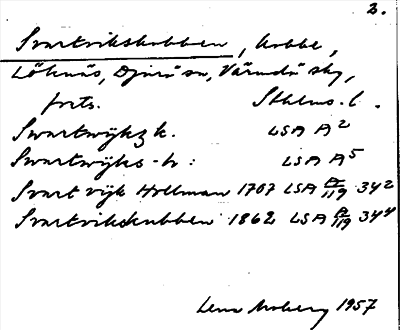 2.
Svartvikskobben, kobbe,
Löknäs, Djurö sn, Värmdö skg,
forts. Sthlms. l.
Swartwijks k. LSA A2
Swartwijks-h: LSA A5
Svart vijk Hollman 1707 LSA A/119 342
Svartvikskubben 1862 LSA A/119 344
Lena Moberg 1957